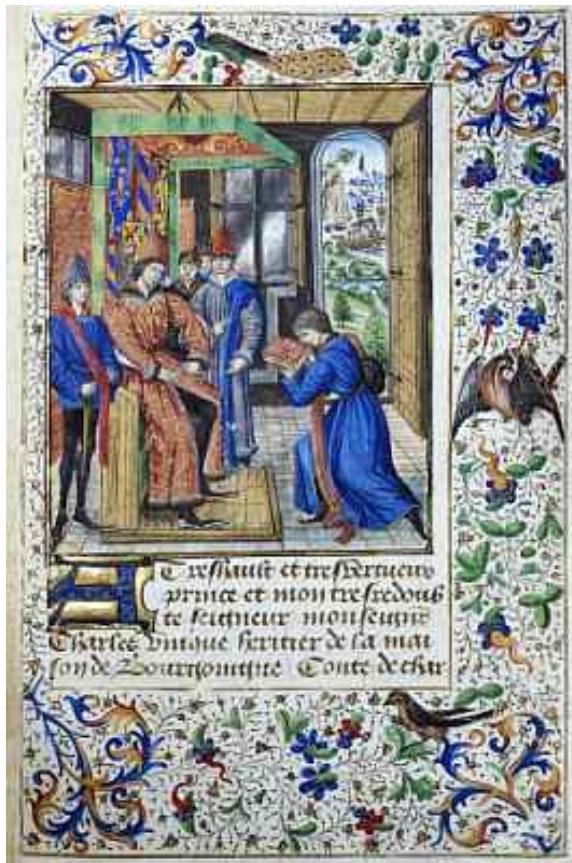 A Treshault et tresvertueux
prince et mon tresredoub
te seigneur monseignr
Charles unique heritier de la mai
son de Bourgoingne Conte de char